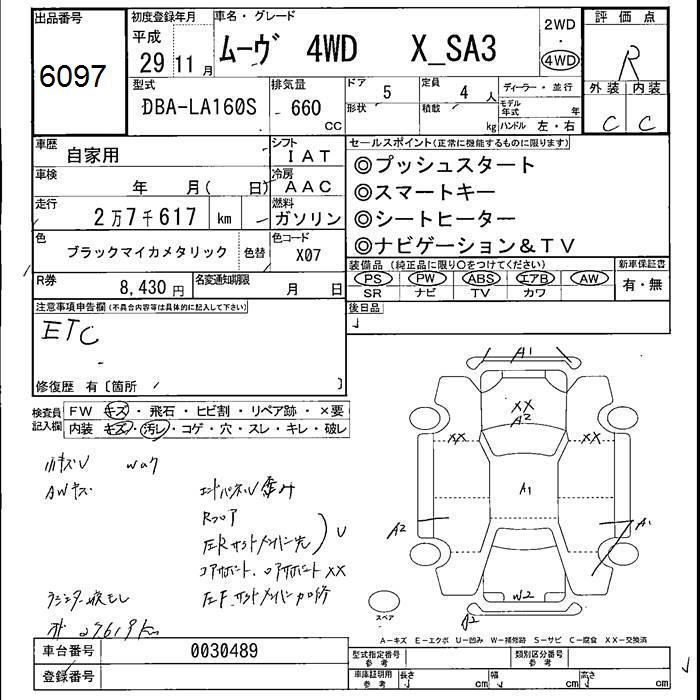 出品番号
6097
初度登録年月
平成
29 11 月
車名・グレード
ムーヴ 4WD X_SA3
2WD
・
4WD
評価点
R
外装 内装
C C
型式
DBA-LA160S
排気量
660
CC
ドア 5
形状
定員 4 人
積載 kg
ディーラー・並行
モデル年式 年
ハンドル 左・右
車歴
自家用
シフト
IAT
車検
年 月( 日)
冷房
AAC
走行
2万7千617 km
燃料
ガソリン
色
ブラックマイカメタリック
色替
色コード
X07
R券
8,430 円
名変通知期限
月 日
セールスポイント(正常に機能するものに限ります)
◎プッシュスタート
◎スマートキー
◎シートヒーター
◎ナビゲーション&TV
装備品(純正品に限り○をつけてください)
PS PW ABS エアB AW
SR ナビ TV カワ
新車保証書
有・無
後日品
注意事項申告欄(不具合内容等は具体的に記入して下さい)
ETC
修復歴 有〔箇所 〕
検査員記入欄
FW キズ・飛石・ヒビ割・リペア跡・×要
内装 キズ・汚レ・コゲ・穴・スレ・キレ・破レ
小キズU Wａク
AWキズ
エンドパネルU 歪み
Rフロア
左Rサイドメンバー先
U
コアサポート、ロアサポート XX
27619km
A1
XX
A2
XX
XX
A1
A2
A1
W2
A2
スペア
A-キズ E-エクボ U-凹み W-補修跡 S-サビ C-腐食 XX-交換済
車台番号
0030489
登録番号
型式指定番号
参考
類別区分番号
参考
車庫証明用
参考
長さ cm
幅 cm
高さ cm